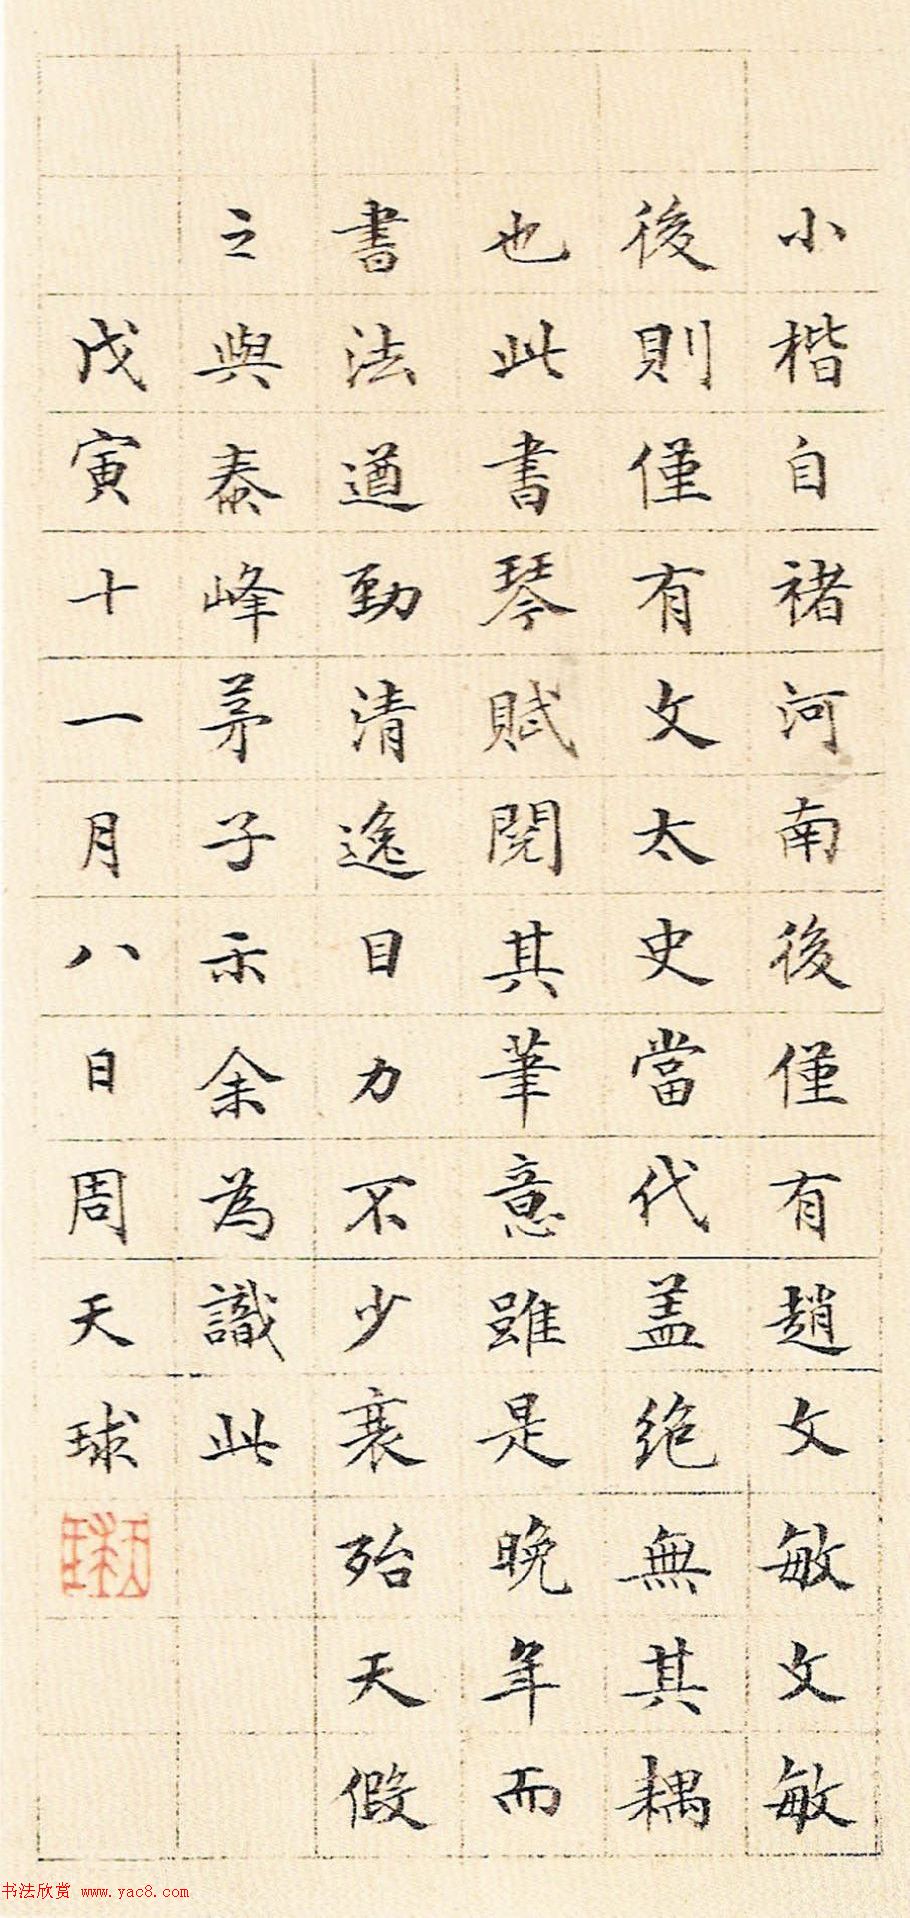 小楷自褚河南後僅有趙文敏文敏
後則僅有文太史當代盖絶無其耦
也此書琴賦閱其筆意雖是晚年而
書法遒勁清逸目力不少衰殆天假
之與泰峰茅子示余為識此
戊寅十一月八日周天球
书法欣赏 www.yac8.com